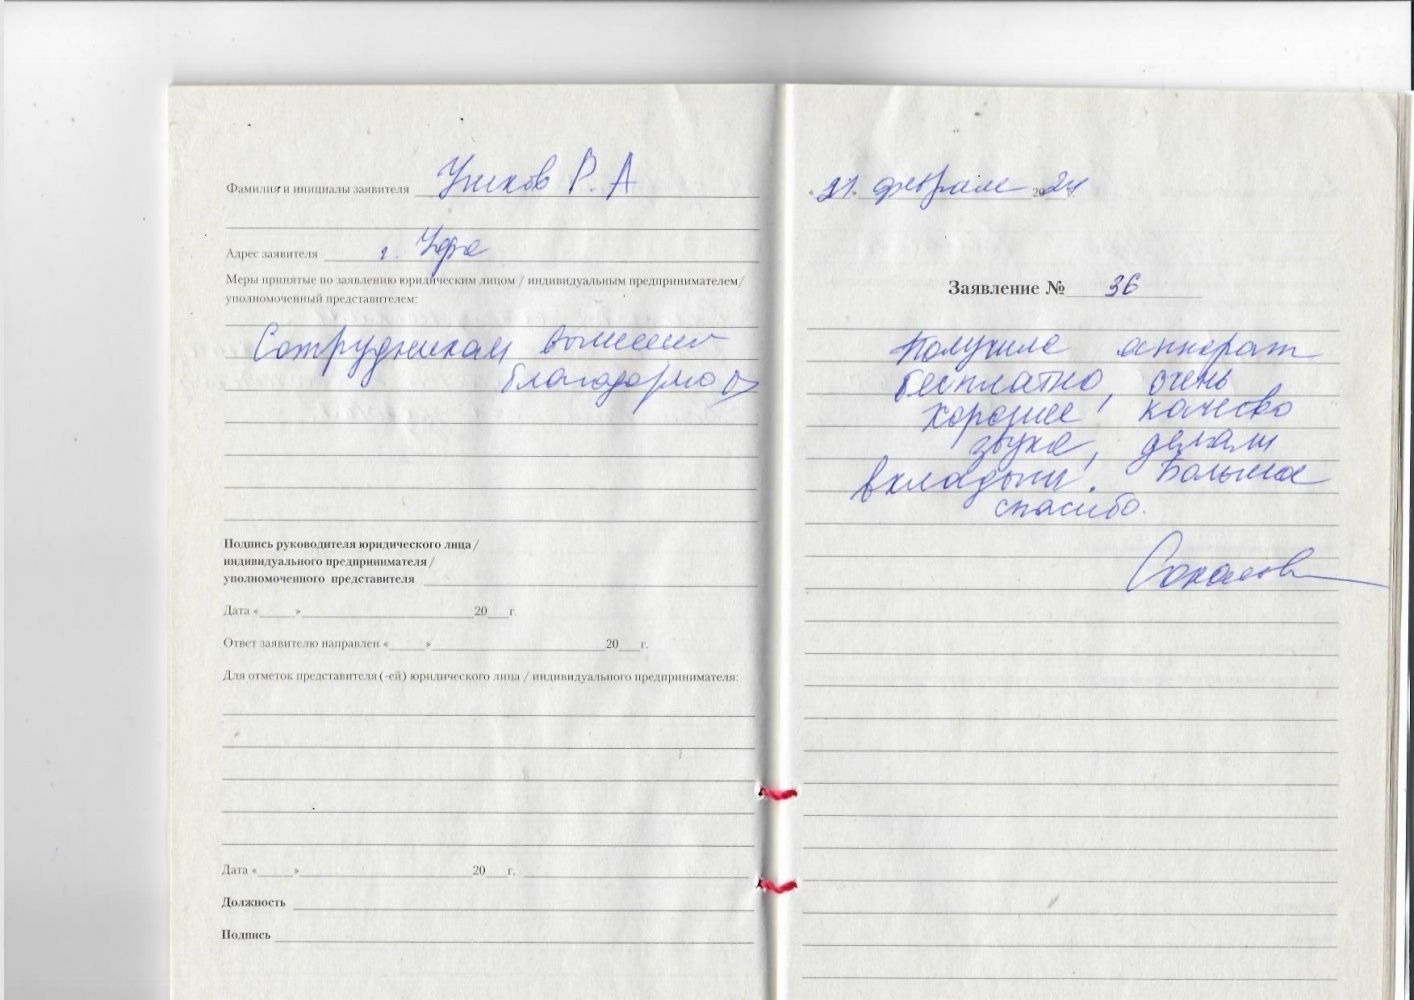 Фамилия и инициалы заявителя Р. А
Адрес заявителя г. Уфа
Меры принятые по заявлению юридическим лицом / индивидуальным предпринимателем/
уполномоченный представителем:
Сотрудникам
благодарность
Подпись руководителя юридического лица /
индивидуального предпринимателя /
уполномоченного представителя
Дата «____»____20__г.
Ответ заявителю направлен «____»____20__г.
Для отметок представителя (-ей) юридического лица / индивидуального предпринимателя:
Дата «____»____20__г.
Должность
Подпись
февраля 2024
Заявление № 36
Получила аппарат
бесплатно, очень
хорошее качесво
звука, делали
вкладыши. Большое
спасибо.